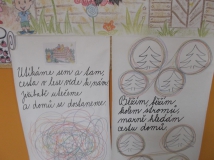 Utíkáme sem a tam,
cesta v lese vede k nám,
jezdeme
a domů se dostaneme.
Běžím, běžím,
kolem stromů,
marně hledám
cestu domů.